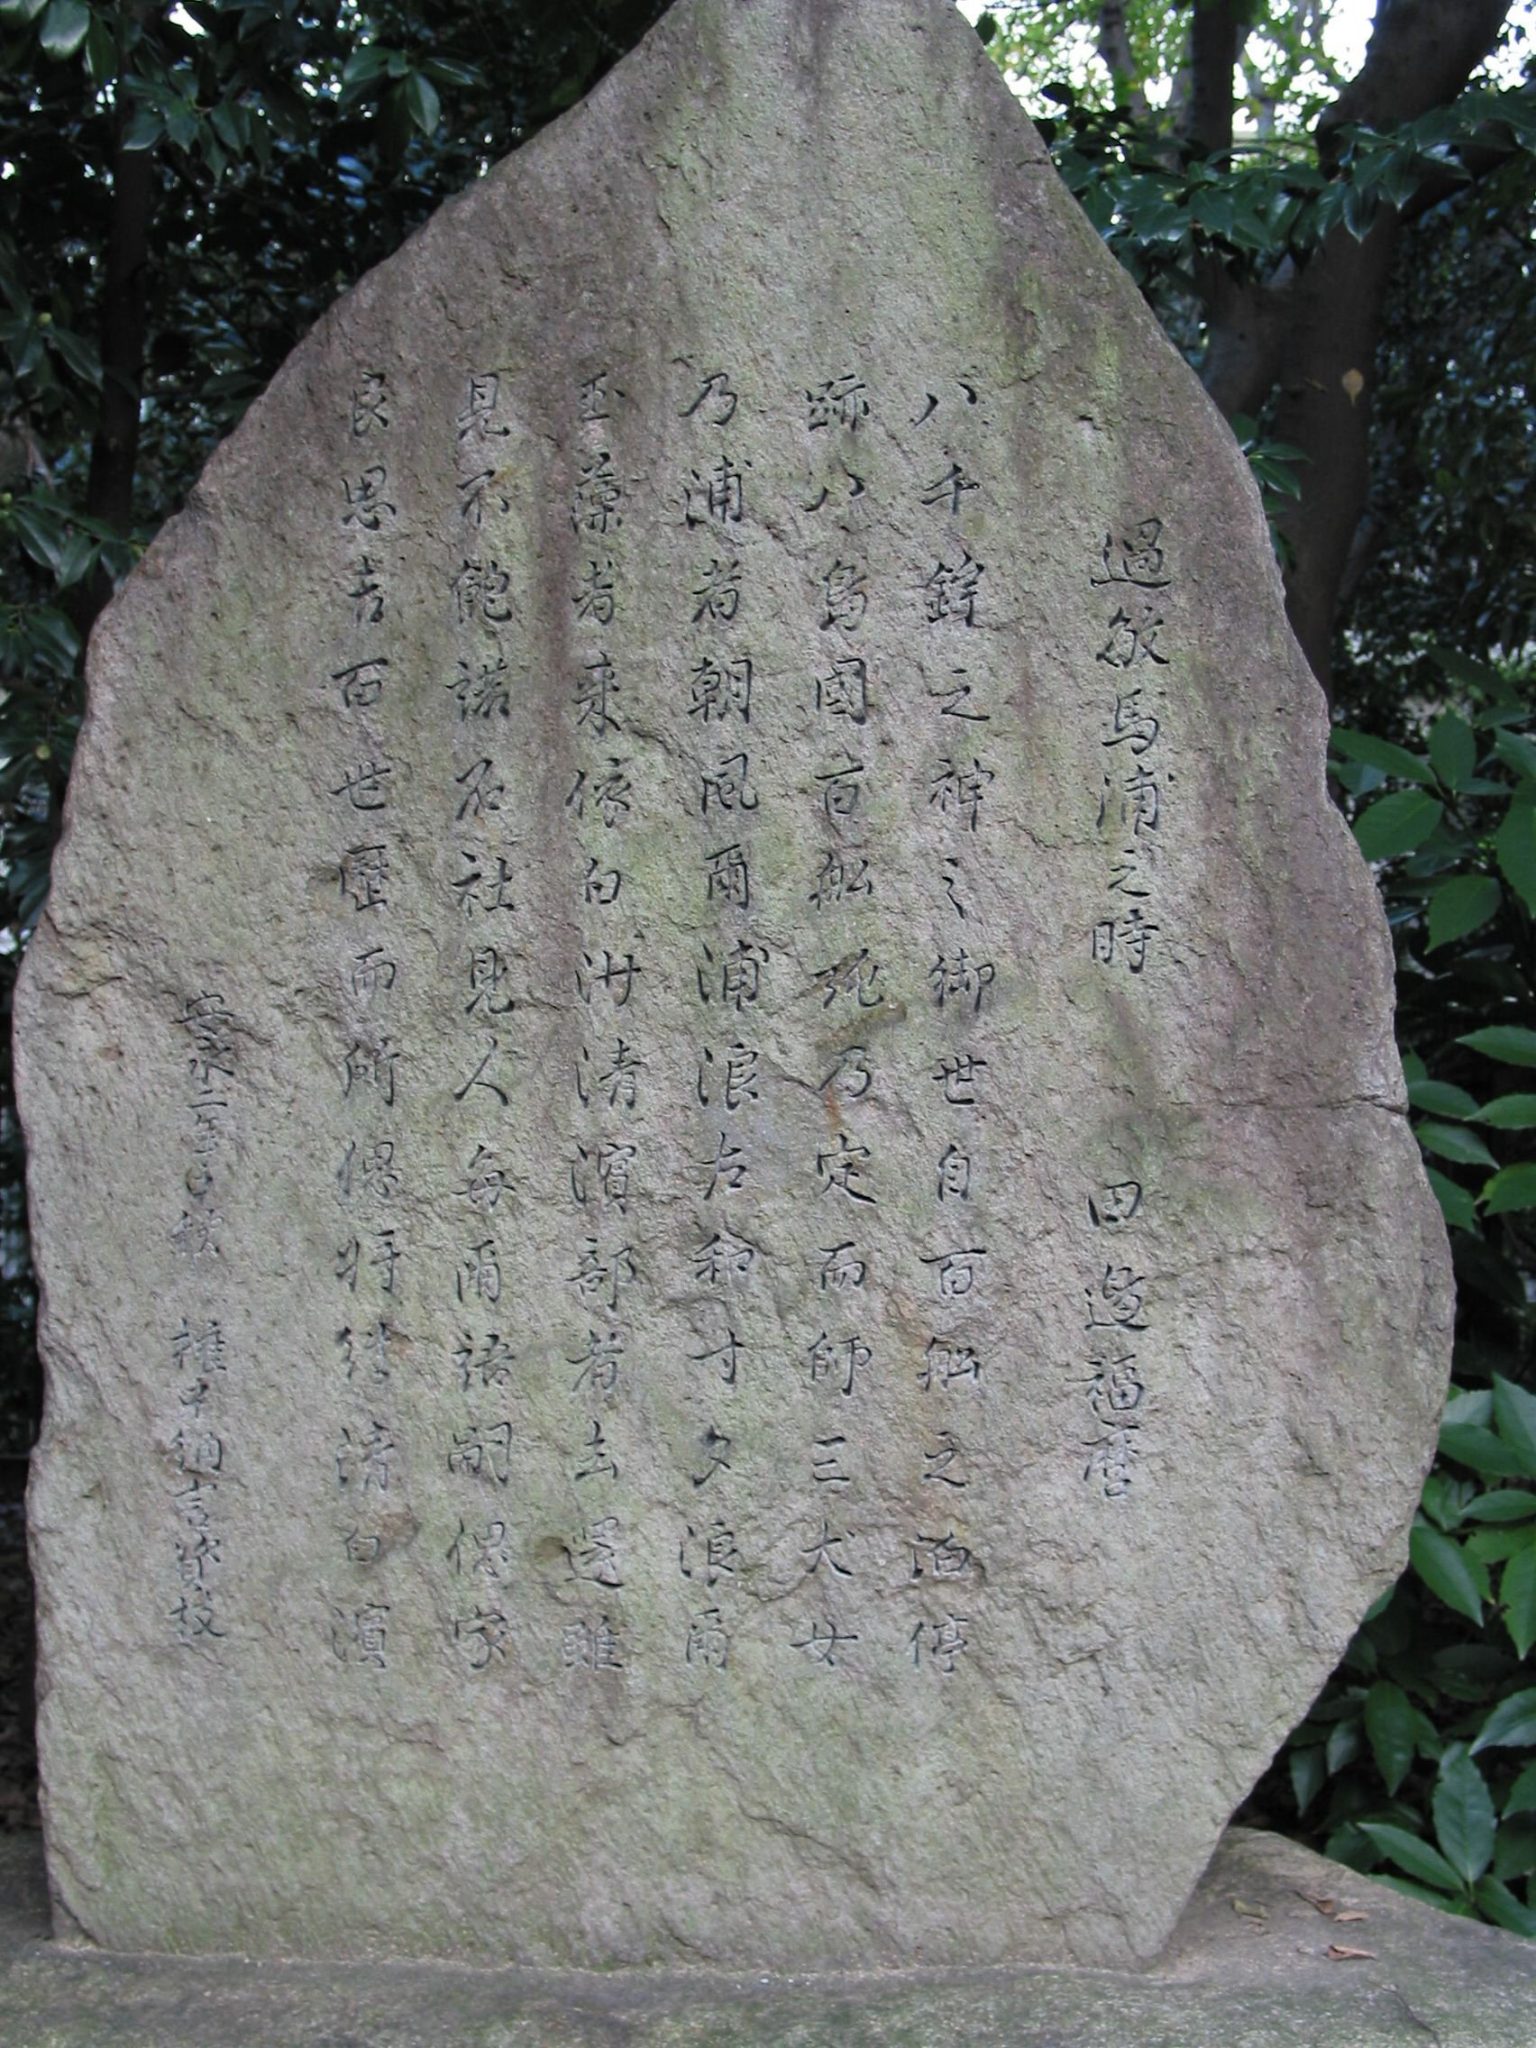 過敏馬浦之時 田邊福麿
八千鉾之神之御世自百舩之泊停
跡八島國百舩純乃定而師三犬女
乃浦者朝風爾浦浪左和寸夕浪爾
玉藻者来依白沙清濱部者去還雖
見不飽諾石社見人毎爾語嗣偲家
良思吉百世歴而所偲将徃清白濱
安永二年中秋 権中納言資枝